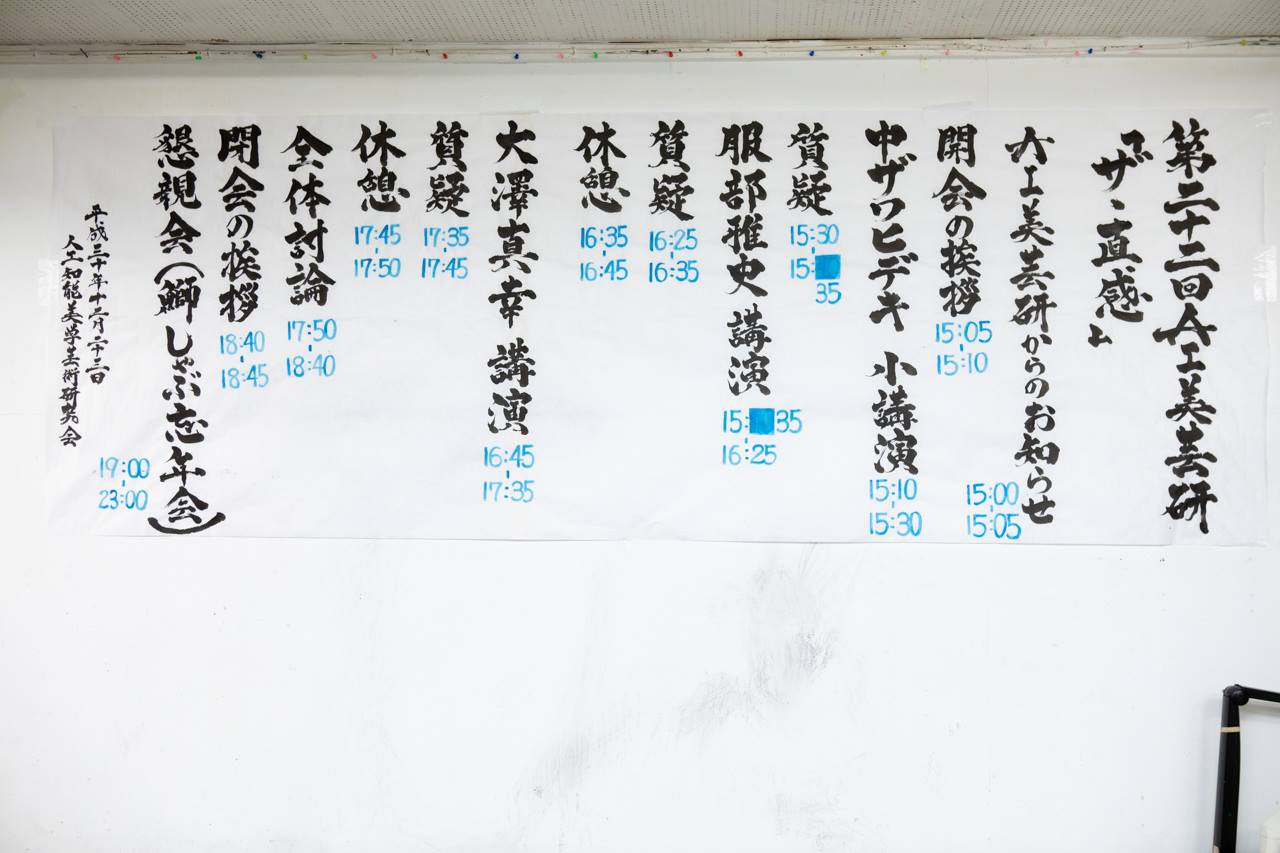 第二十二回AI美芸研
『ザ・直感』
AI美芸研からのお知らせ
15:00
-
15:05
開会の挨拶
15:05
-
15:10
中ザワヒデキ 小講演
15:10
-
15:30
質疑
15:30
-
15:
35
服部雅史 講演
15: 35
-
16:25
質疑
16:25
-
16:35
休憩
16:35
-
16:45
大澤真幸 講演
16:45
-
17:35
質疑
17:35
-
17:45
休憩
17:45
-
17:50
全体討論
17:50
-
18:40
閉会の挨拶
18:40
-
18:45
懇親会(鰤しゃぶ忘年会)
19:00
-
23:00
平成三十年十二月二十三日
人工知能美学芸術研究会